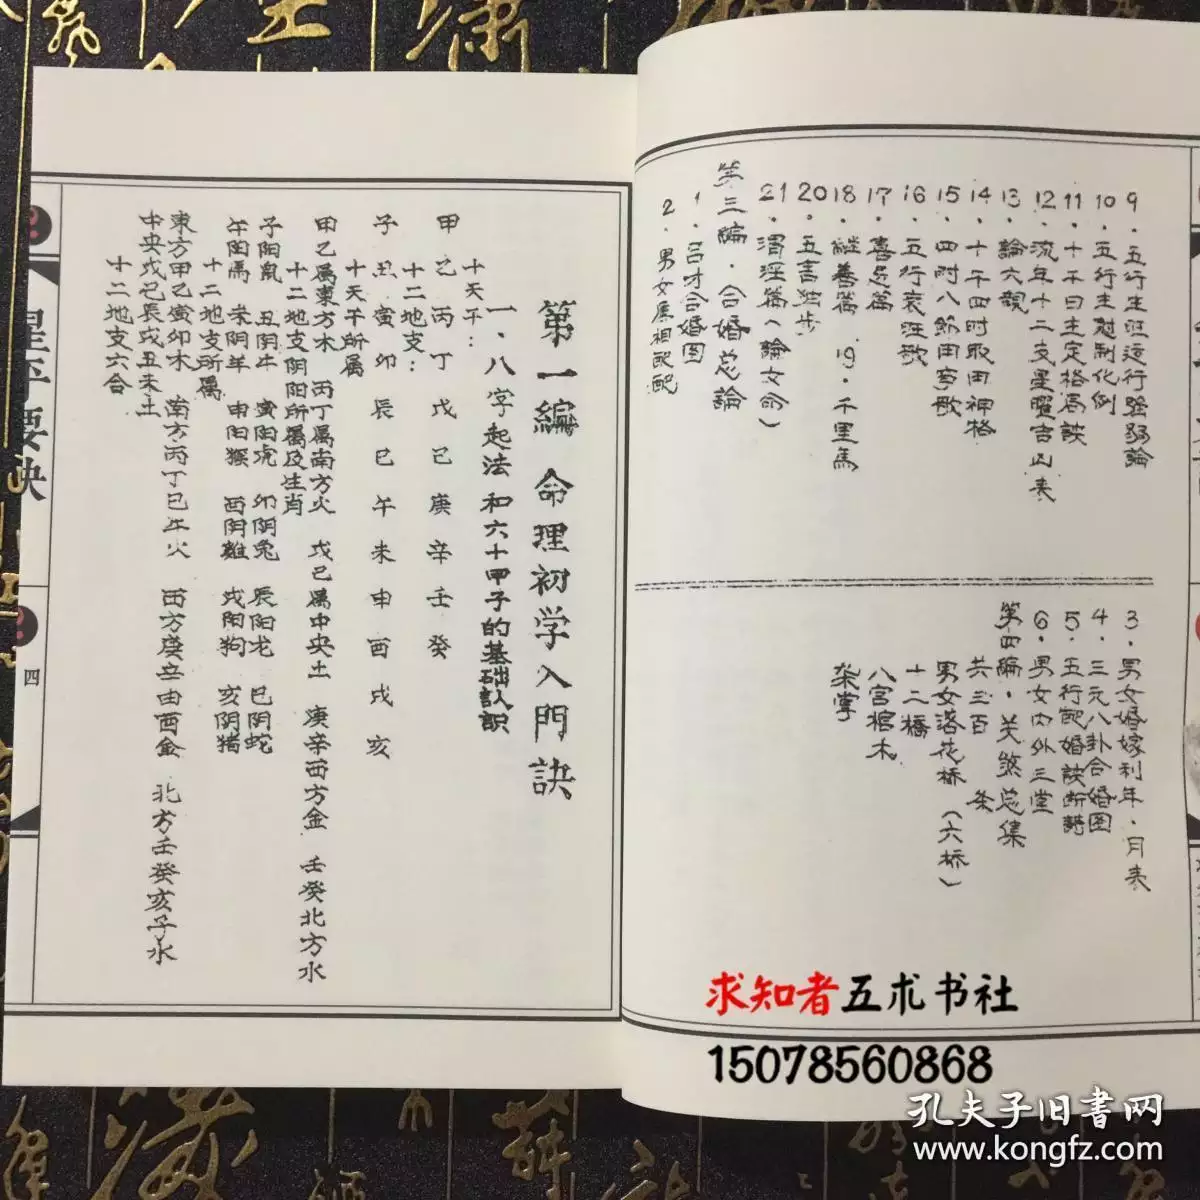 9．五行生旺运行强弱論
10．五行生尅制化例
11．十干日主定格局訣
12．流年十二支星曜吉凶表
13．論六親
14．十干四时取用神格
15．四时八節用事歌
16．五行衰旺歌
17．喜忌篇
18．継善篇 19．千里馬
20．五言独步
21．渭泾篇（論女命）
第三編．合婚总論
1．吕才合婚图
2．男女属相配
3．男女婚嫁利年．月表
4．三元八卦合婚图
5．五行配婚訣断詩
6．男女内外三堂
第四編．关煞总集
共三百 条
男女落花桥（六桥）
十二橋
八宫棺木
架掌
第一編 命理初学入門訣
一．八字起法和六十甲子的基础认識
十天干：
甲乙丙丁戊己庚辛壬癸
十二地支：
子丑寅卯辰巳午未申酉戌亥
十天干所属
甲乙属東方木 丙丁属南方火 戊己属中央土 庚辛西方金 壬癸北方水
十二地支阴阳所属及生肖
子阳鼠 丑阴牛 寅阳虎 卯阴兔 辰阳龙 巳阴蛇
午阳馬 未阴羊 申阳猴 酉阴雞 戌阳狗 亥阴猪
十二地支所属
東方甲乙寅卯木 南方丙丁巳午火 西方庚辛申酉金 北方壬癸亥子水
中央戊己辰戌丑未土
十二地支六合
星平要诀
四
求知者五术书社
15078560868
孔夫子旧書网
www.kongfz.com